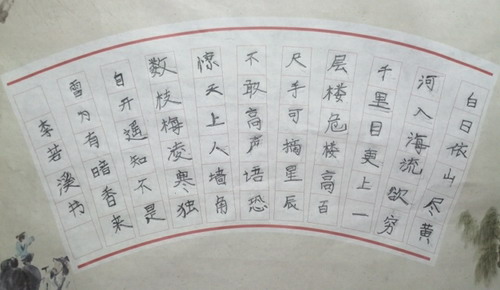 白日依山尽黄
河入海流欲穷
千里目更上一
层楼危楼高百
尺手可摘星辰
不敢高声语恐
惊天上人墙角
数枝梅凌寒独
自开遥知不是
雪为有暗香来
李若溪书